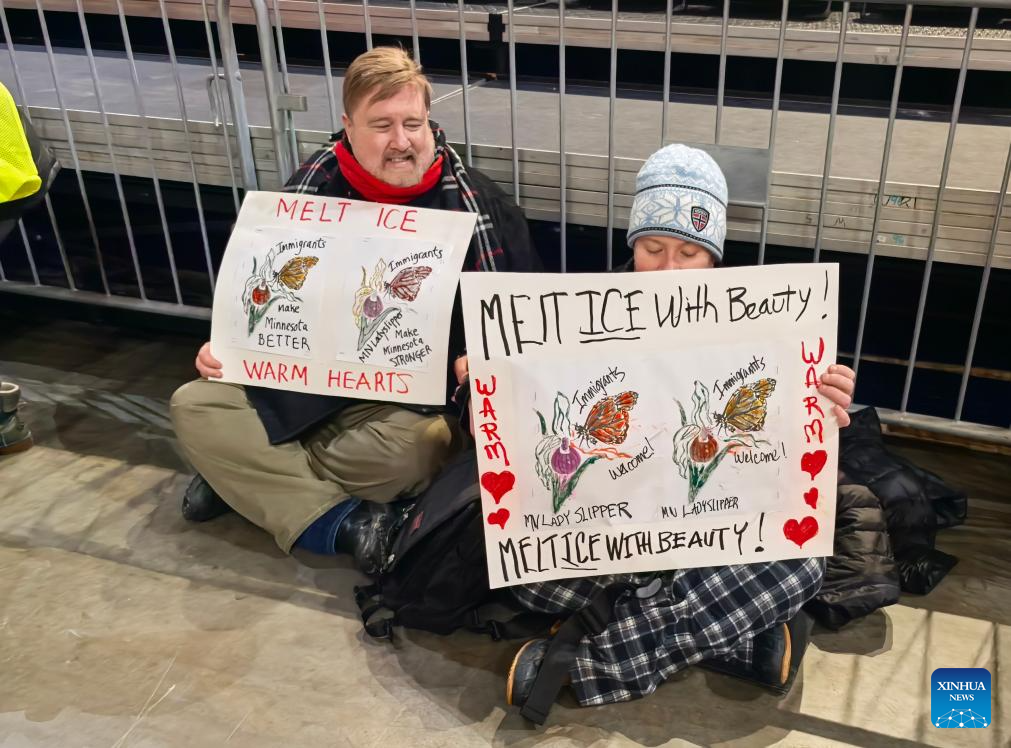 MELT ICE
Immigrants
make
Minnesota
BETTER
Immigrants
MN Ladyslipper
Make
Minnesota
STRONGER
WARM HEARTS
MELT ICE With Beauty!
WARM
Immigrants
Welcome!
MN LADY SLIPPER
Immigrants
Welcome!
MN LADYSLIPPER
WARM
MELT ICE WITH BEAUTY!
XINHUA
NEWS